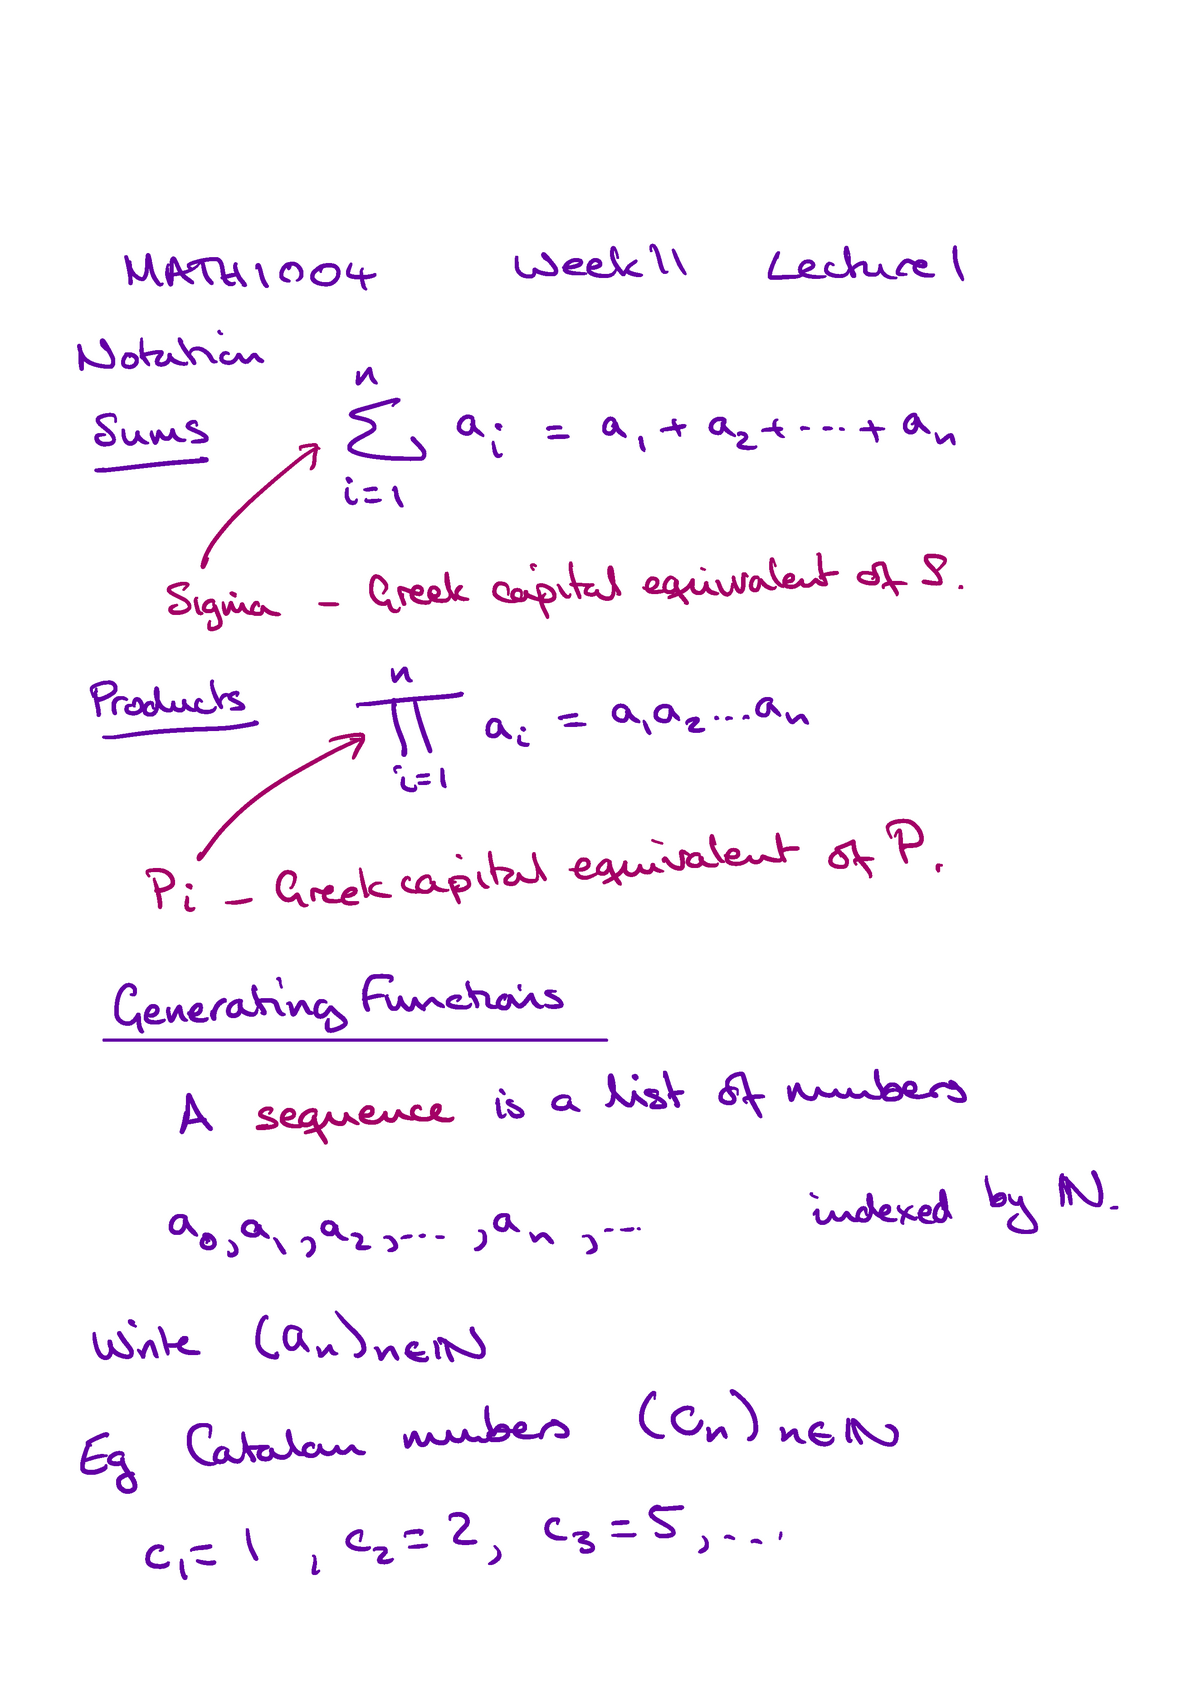 MATH1004 Week 11 Lecture 1
Notation
Sums
n
∑ aᵢ = a₁ + a₂ + ··· + aₙ
i=1
Sigma – Greek capital equivalent of S.
Products
n
∏ aᵢ = a₁a₂...aₙ
i=1
Pi – Greek capital equivalent of P.
Generating Functions
A sequence is a list of numbers
a₀, a₁, a₂, ..., aₙ, ... indexed by ℕ.
Write (aₙ)ₙ∈ℕ
Eg Catalan numbers (cₙ)ₙ∈ℕ
c₁ = 1, c₂ = 2, c₃ = 5, ...